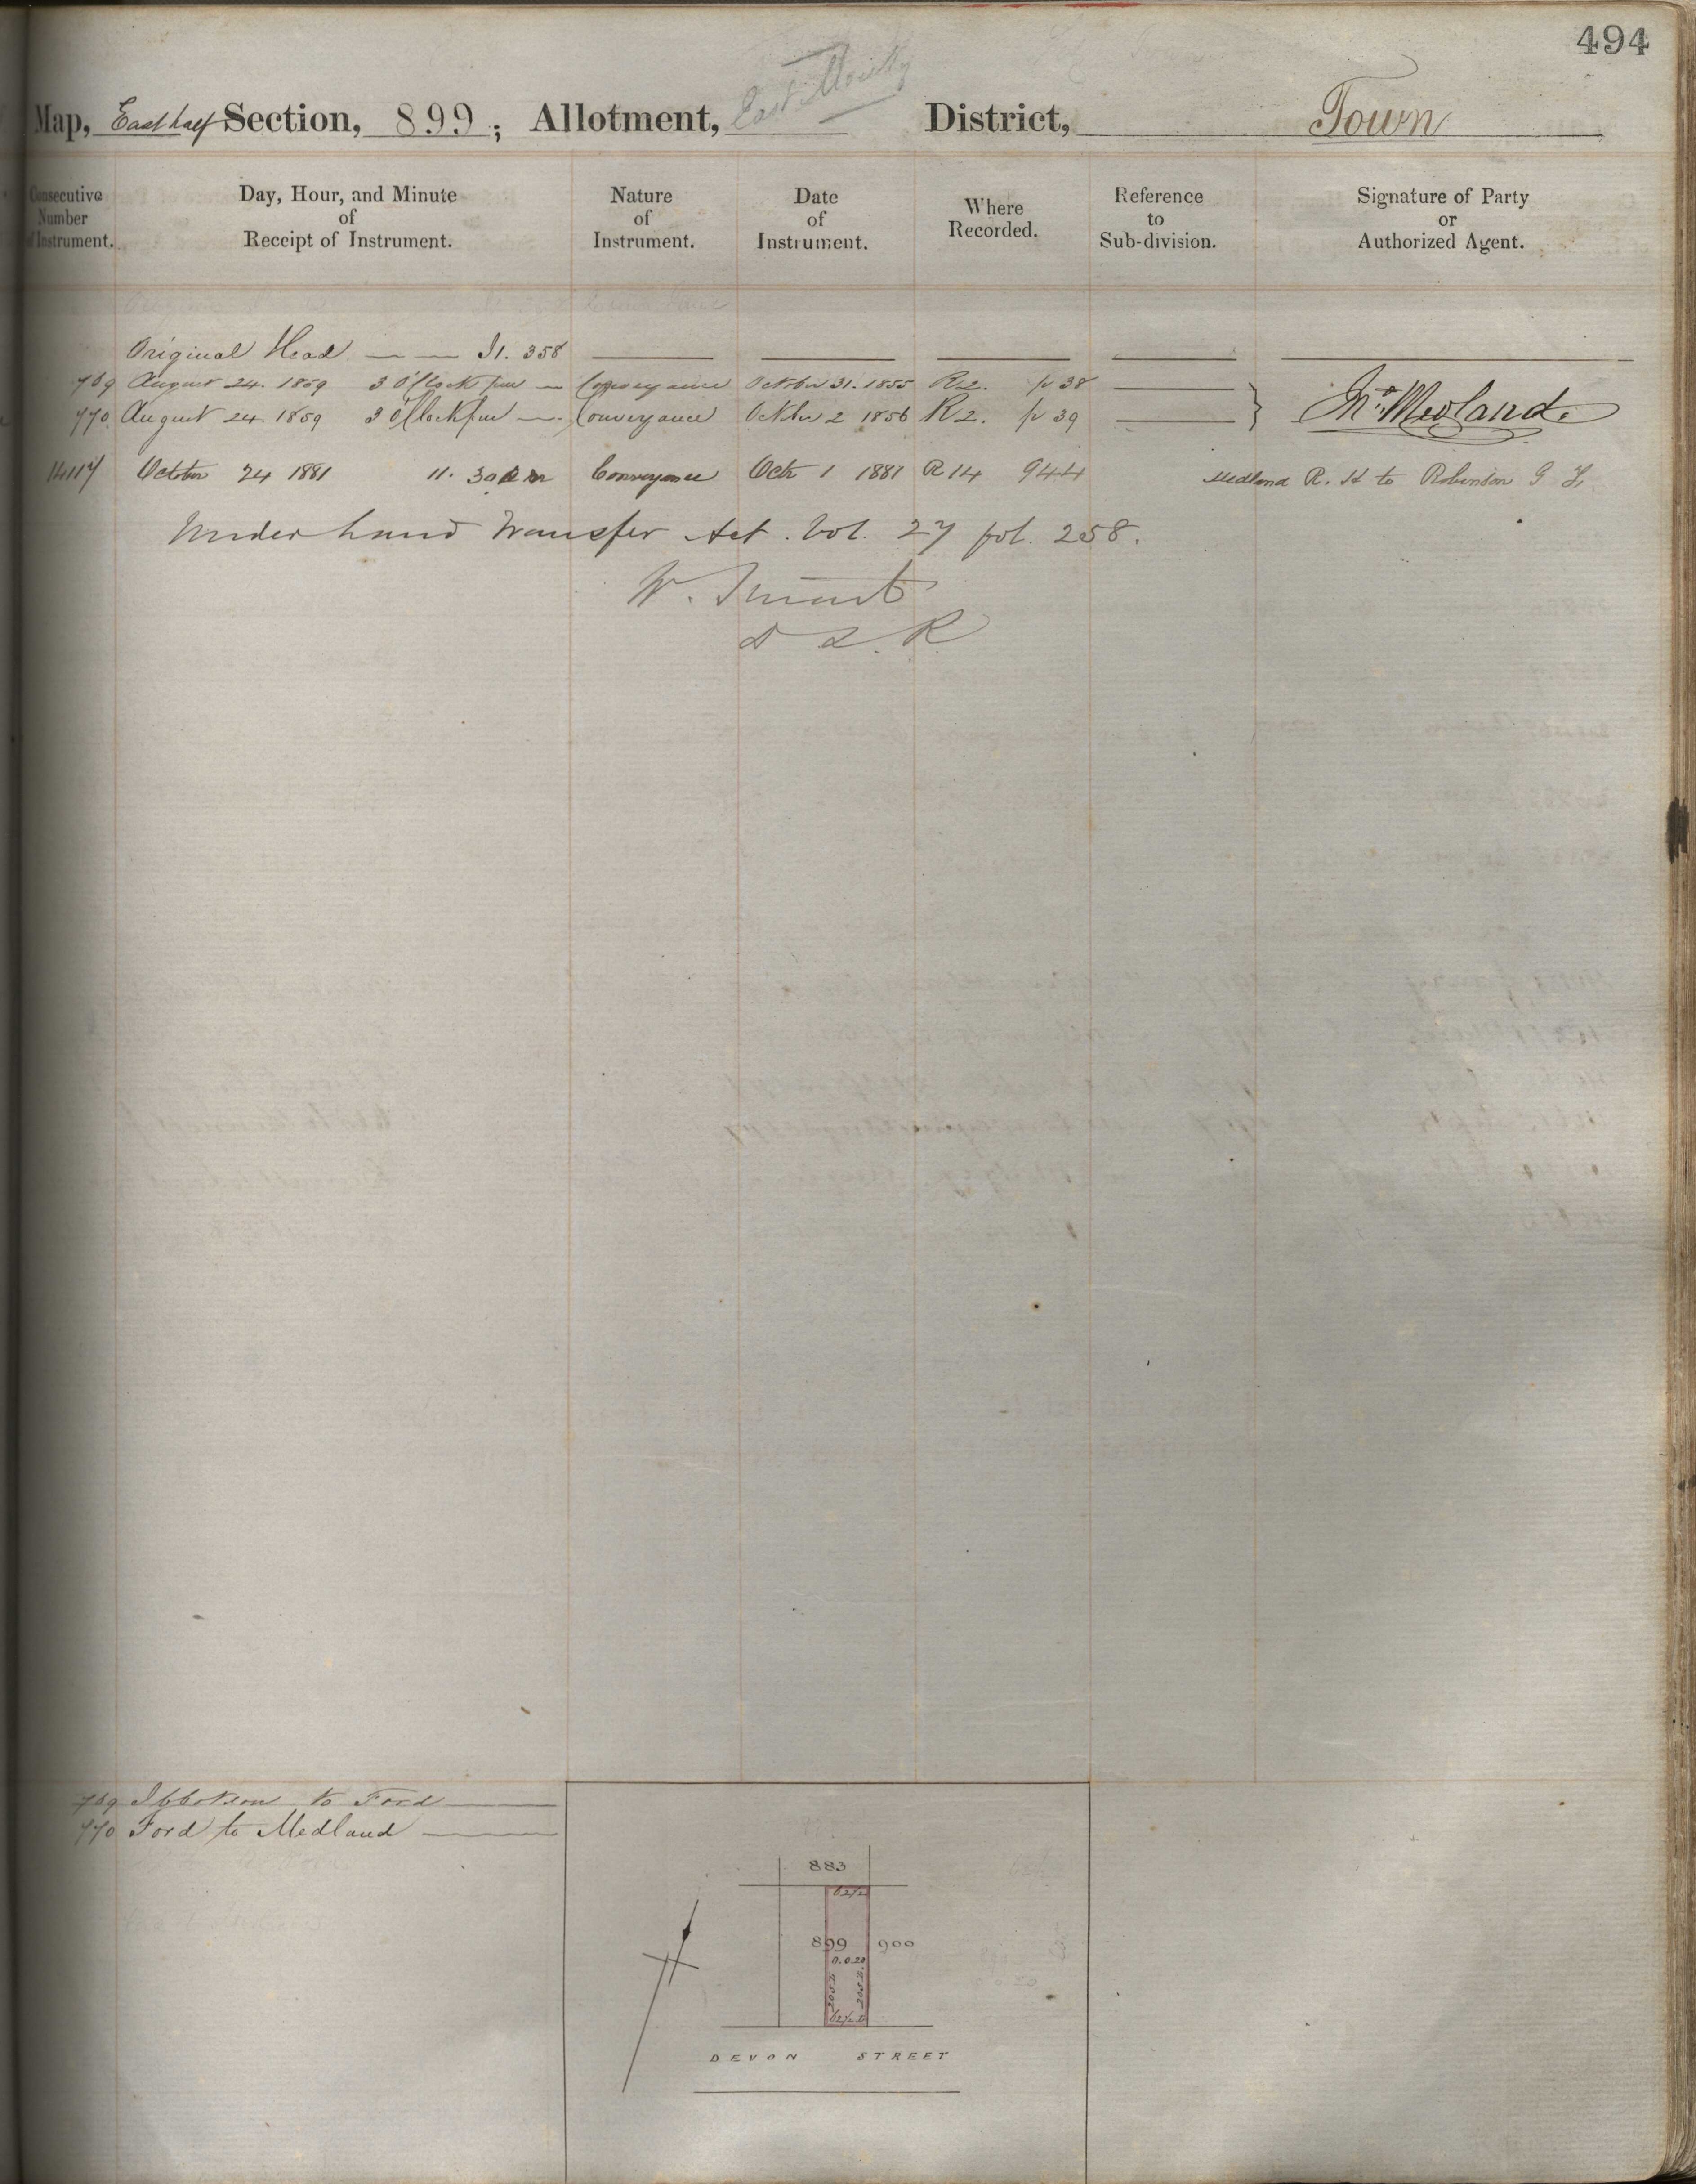 494
Map, East half Section, 899; Allotment, District, Town
Consecutive Number of Instrument.
Day, Hour, and Minute of Receipt of Instrument.
Nature of Instrument.
Date of Instrument.
Where Recorded.
Reference to Sub-division.
Signature of Party or Authorized Agent.
Original Head — — I1. 358
769 August 24. 1859 3 O'Clock pm — Conveyance October 31. 1855 R2. p 38
770 August 24. 1859 3 O'Clock pm — Conveyance October 2 1856 R2. p 39
Medland.
14117 October 24 1881 11. 30 am Conveyance Octr 1 1881 R14 944 Medland R. H to Robinson G
Under Land Transfer Act. Vol. 27 fol. 258.
W. Stuart
D L. R
769 Ibbotson to Ford
770 Ford to Medland
883
62½
899 900
0.0.20
205 205
62½
DEVON STREET